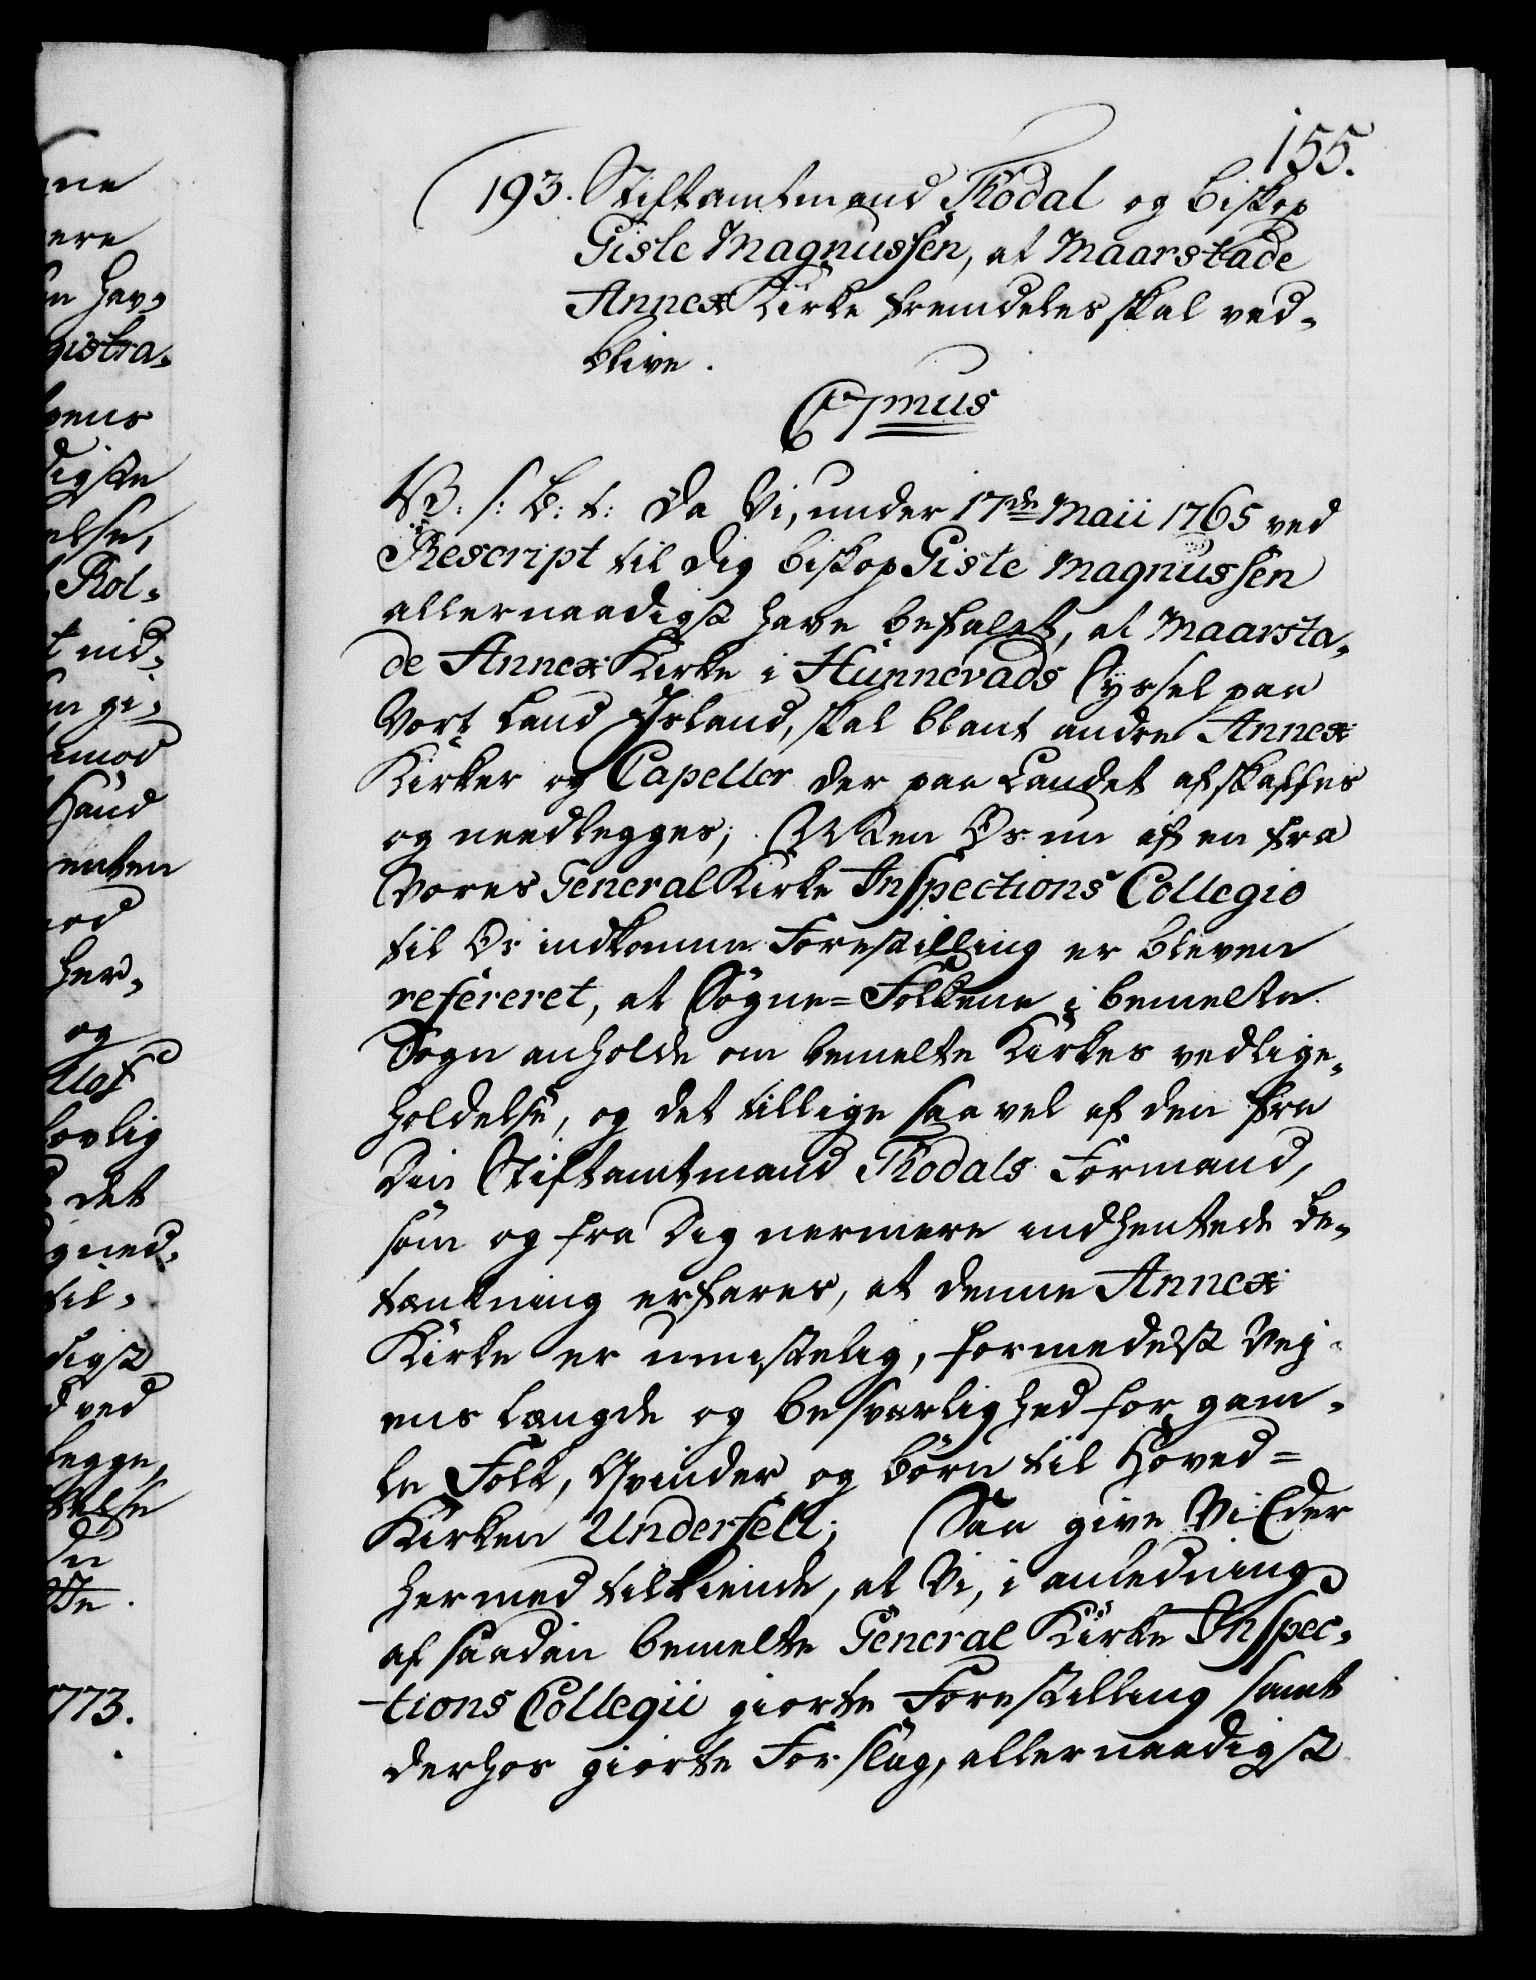 155.
193. Stiftamtmand Thodal og Biskop
Gisle Magnussen, at Maarstade
Annex Kirke fremdeles skal ved-
blive.
C7mus
V. s. B. t: Da Vi, under 17de Maii 1765 ved
Rescript til dig Biskop Gisle Magnussen
allernaadigst have befalet, at Maarsta-
de Annex Kirke i Hunnevads Syssel paa
Vort Land Island, skal blant andre Annex
Kirker og Capeller der paa Landet afskaffes
og needlegges; Men Os nu af en fra
Vores General Kirke Inspections Collegio
til Os indkomne Forestilling er bleven
refereret, at Sogne=Folkene i bemelte
Sogn anholde om bemelte Kirkes vedlige-
holdelse, og det tillige saavel af den fra
Din Stiftamtmand Thodals Formand,
som og fra Dig nermere indhentede Be-
tænkning erfares, at denne Annex
Kirke er umistelig, formedelst Vej-
ens Længde og besværlighed for gam-
le Folk, Qvinder og Børn til Hoved=
Kirken Underfell; Saa give Vi Eder
hermed tilkiende, at Vi, i anledning
af saadan bemelte General Kirke Inspec-
tions Collegii giorte Forestilling samt
derhos giorte Forslag, allernaadigst
ne
ere
n hav-
gistra-
vens
digste
else,
Rol-
t nid-
n gi-
imod
Haand
enten
od
her-
og
lovlig
det
gned-
til-
digst
d ved
legge,
else
1773.